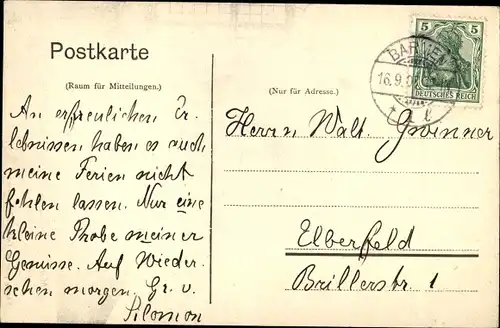 Postkarte
(Raum für Mitteilungen.)
An erfreulichen Er-
lebnissen haben es auch
meine Ferien nicht
fehlen lassen. Nur eine
kleine Probe meiner
Genüsse. Auf Wieder-
sehen morgen. Gr. v.
Silomon
(Nur für Adresse.)
Herrn Walt. Gwinner
Elberfeld
Brillerstr. 1
5 5
DEUTSCHES REICH
BARMEN
16.9.